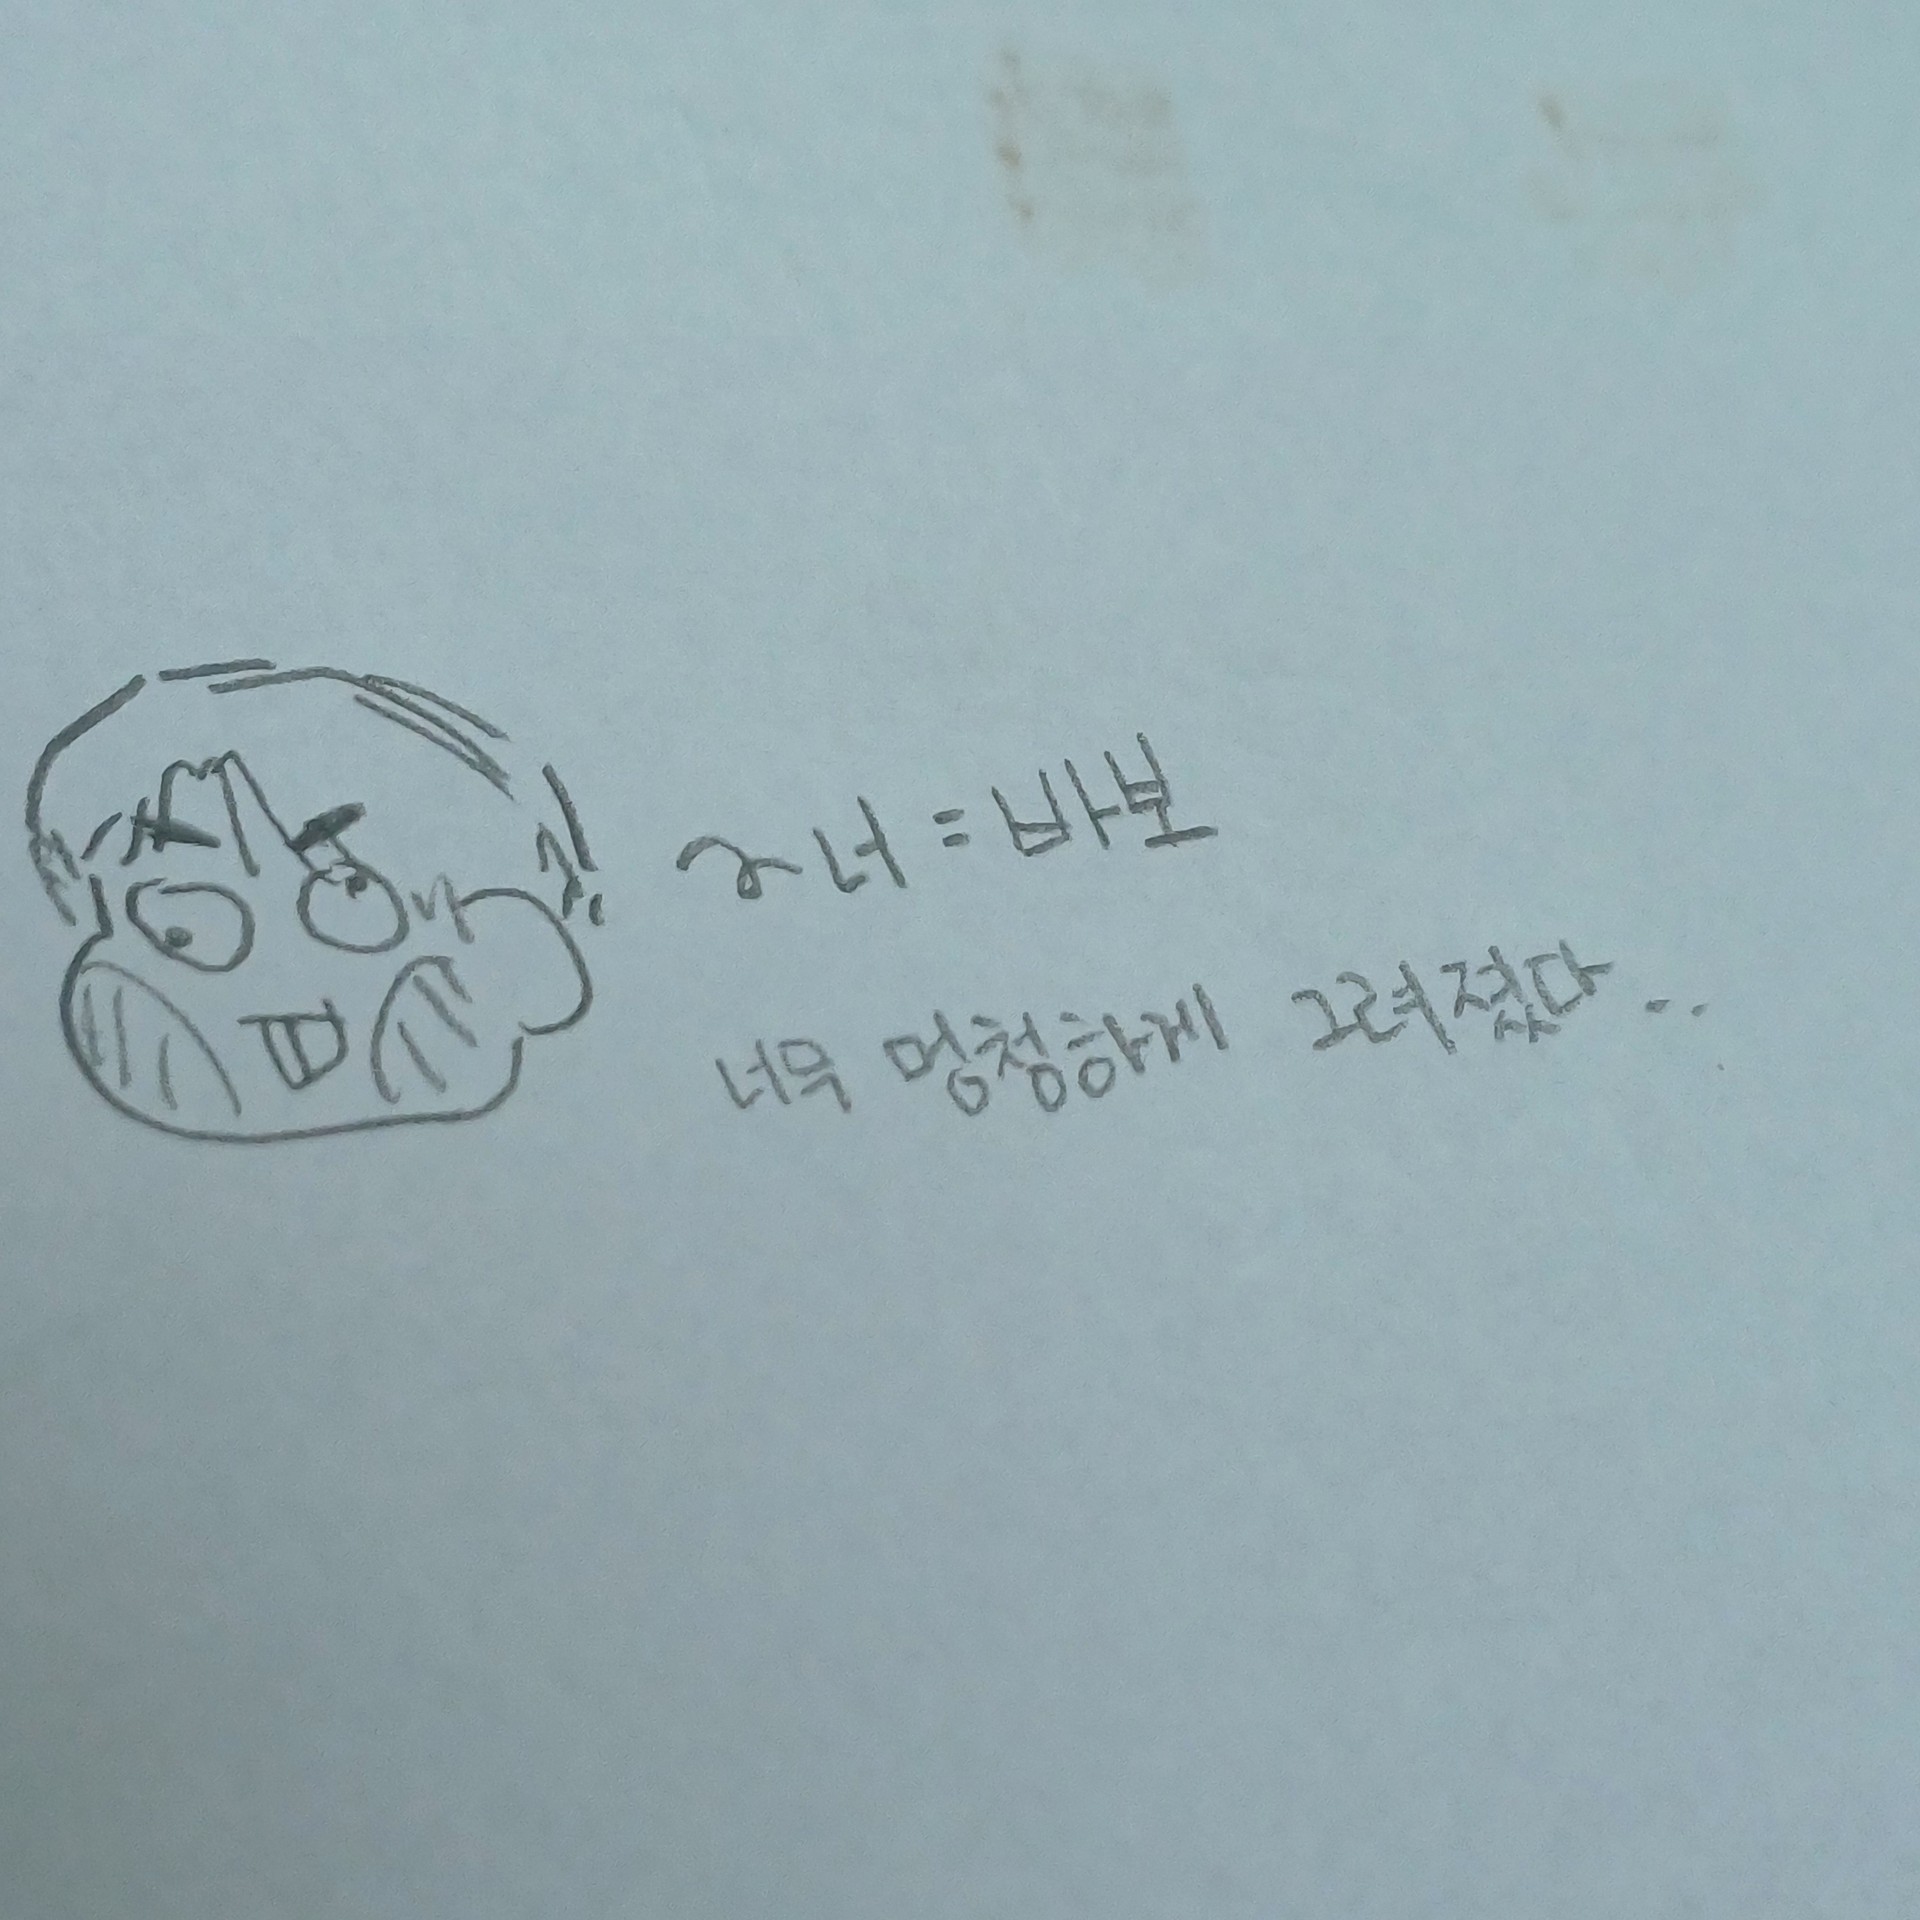 ~ 너 = 바보
너무 멍청하게 그려졌다...